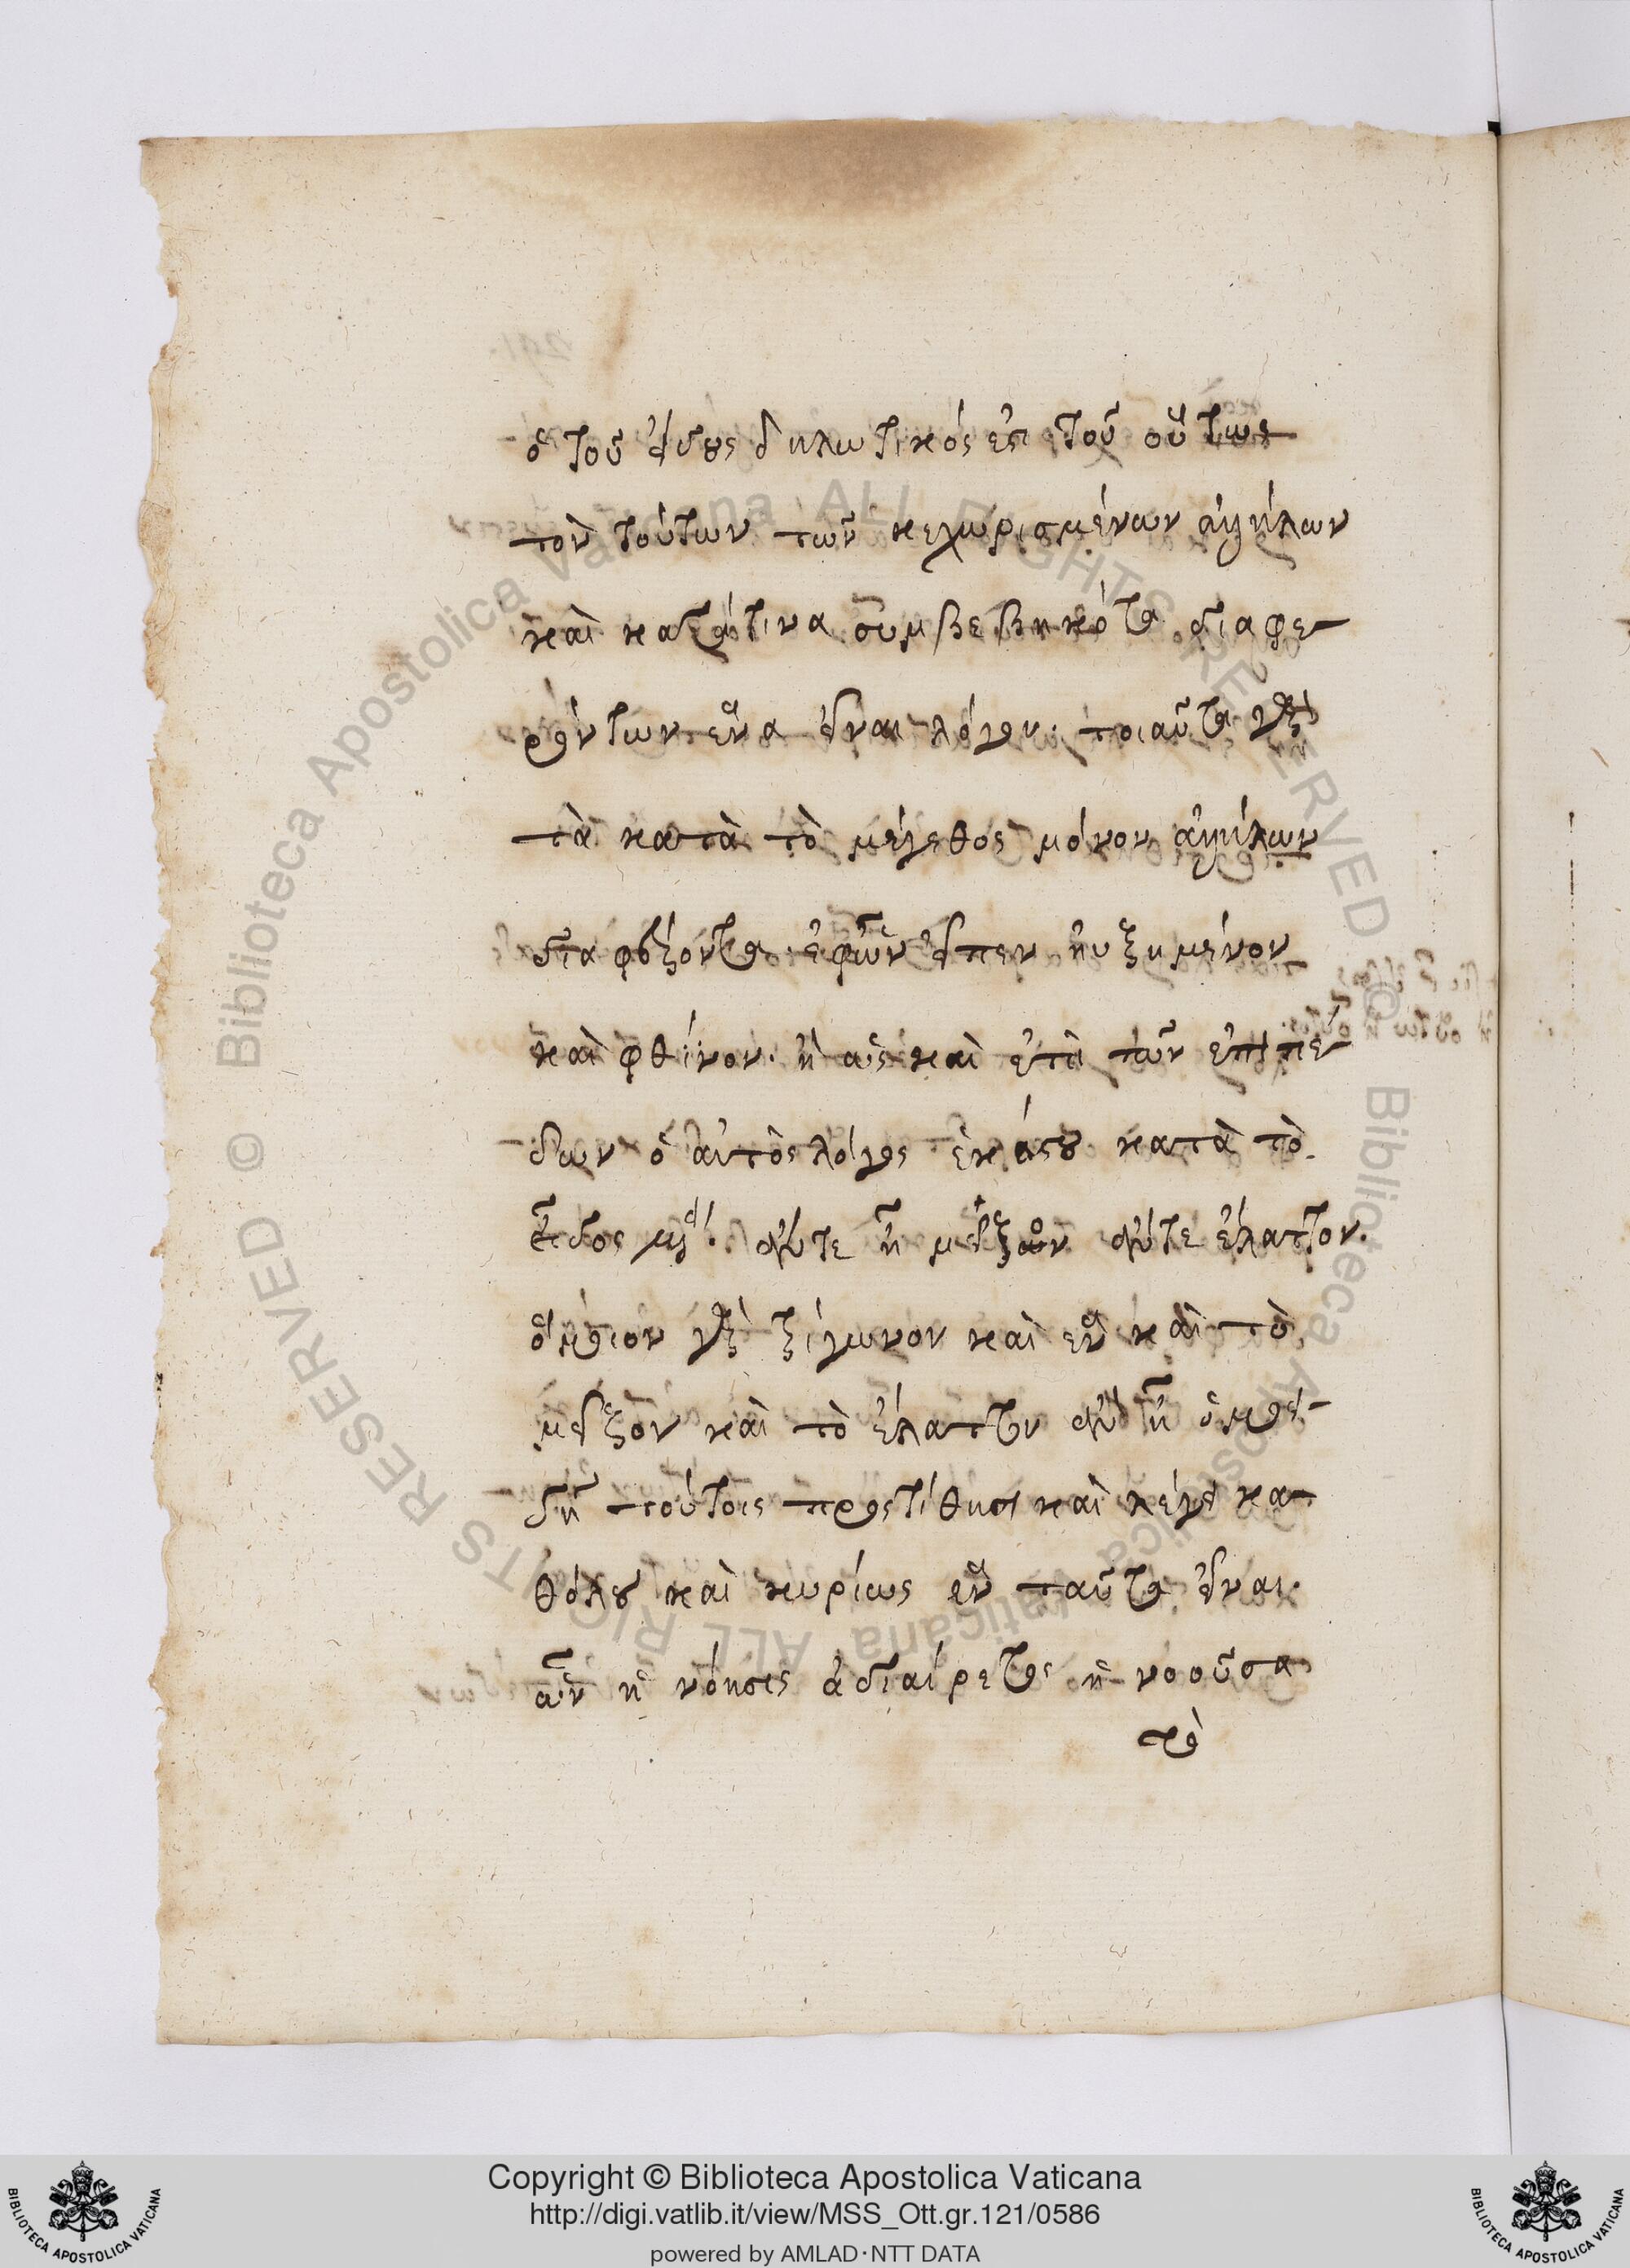 ὁ τοῦ εἴδους δηλωτικός ἐπὶ τοῦ οὕτως
τον τούτων τῶν κεχωρισμένων ἀλλήλων
καὶ κατάτινα συμβεβηκότα διαφε-
ρόντων ἕνα εἶναι λόγον. τοιαῦτα γὰρ
τὰ κατὰ τὸ μέγεθος μόνον ἀλλήλων
διαφέροντα. ἐφ' ὧν εἶπεν ηὐξημένον
καὶ φθίνον. ἢ ὡς καὶ ἐπὶ τῶν ἐπιπέ-
δων ὁ αὐτὸς λόγος ἑκάστου κατὰ τὸ
εἶδος μὲν. οὔτε ἢ μεῖζον οὔτε ἔλαττον.
ὅμοιον γὰρ τρίγωνον καὶ ἓν καὶ τὸ
μεῖζον καὶ τὸ ἔλαττον
δὴ τούτοις προστίθησι καὶ λέγει κα-
θόλου καὶ κυρίως ἓν ταῦτα εἶναι.
ὧν ἡ νόησις ἀδιαίρετος ἡ νοοῦσα
τὸ
Copyright © Biblioteca Apostolica Vaticana
http://digi.vatlib.it/view/MSS_Ott.gr.121/0586
powered by AMLAD·NTT DATA
BIBLIOTECA APOSTOLICA VATICANA
BIBLIOTECA APOSTOLICA VATICANA
© Biblioteca Apostolica Vaticana ALL RIGHTS RESERVED © Biblioteca Apostolica Vaticana ALL RIGHTS RESERVED